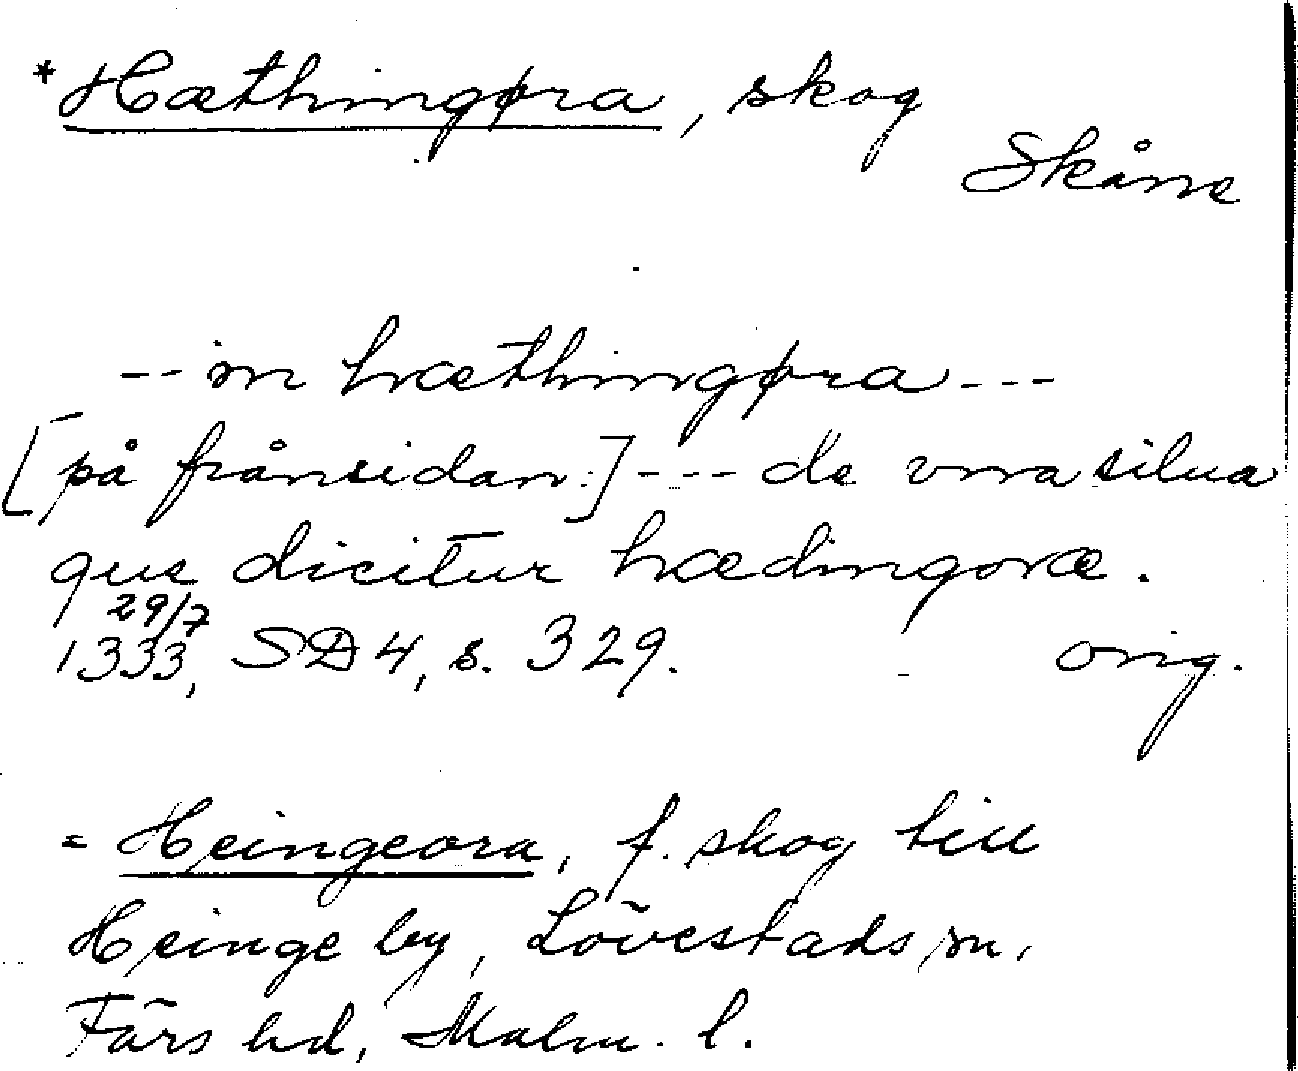 *Hæthingøra, skog
Skåne
-- in hæthingøra ---
[på frånsidan] --- de vna silua
que dicitur hædingoræ.
29/7
1333, SD 4, s. 329. orig.
= Heingeora, f. skog till
Heinge by, Lövestads sn,
Färs hd, Malm. l.